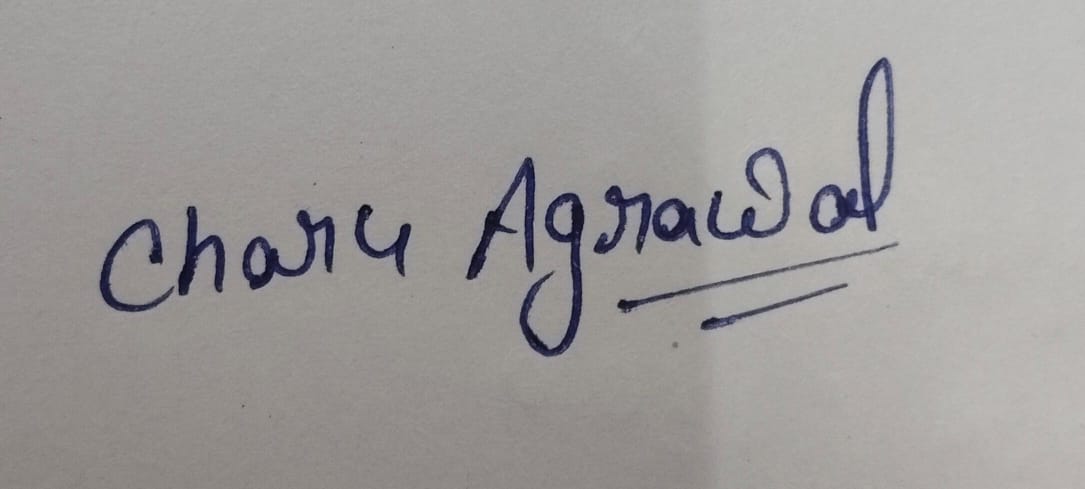 Charu Agrawal